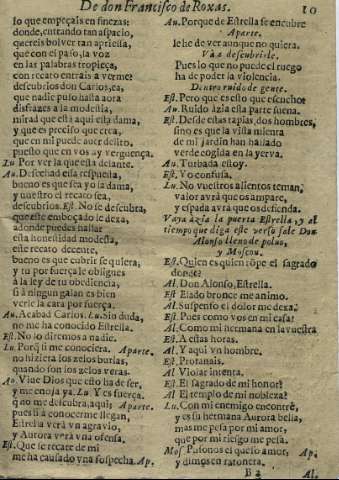 De don Francisco de Roxas.
10
lo que empeçais en finezas:
donde, entrando tan aspacio,
quereis bolver tan apriessa,
que con el passo, la voz
en las palabras tropieça,
con recato entrais a verme?
descubrios don Carlos, ea,
que nadie puso hasta aora
disfrazes a la modestia,
mirad que està aqui esta dama,
y que es preciso que crea,
que en mi puede aver delito,
puesto que en vos ay verguença.
Lu. Por ver la que està delante.
Au. Desechad essa respuesta,
bueno es que sea yo la dama,
y vuestro el recato sea,
descubrios. Est. No se descubra,
que este emboçado le dexa,
adonde puedes hallar
esta honestidad modesta,
este recato decente,
bueno es que cubrir se quiera,
y tu por fuerça le obligues
à la ley de tu obediencia,
si à ningun galan es bien
verle la cara por fuerça.
Au. Acabad Carlos. Lu. Sin duda,
no me ha conocido Estrella.
Est. No lo diremos a nadie.
Lu. Porq̃ si me conociera, Aparte.
no hiziera los zelos burlas,
quando son los zelos veras.
Au. Vive Dios que esto ha de ser,
y me enoja ya. Lu. Y es fuerça.
q̃ no me descubra, aqui; Aparte
pues si à conocerme llegan,
Estrella verà vn agravio,
y Aurora verà vna ofensa.
Est. Que se recate de mi
me ha causado vna sospecha. Ap.
Au. Porque de Estrella se encubre
Aparte.
le he de ver aunque no quiera.
Và a descubrirle.
Pues lo que no puede el ruego
ha de poder la violencia.
Dentro ruido de gente.
Est. Pero que es esto que escucho?
Au. Ruido àzia esta parte suena.
Est. Desde estas tapias, dos hombres,
sino es que la vista mienta
de mi jardin han hallado
verde cogida en la yerva.
Au. Turbada estoy.
Est. Yo confusa.
Lu. No vuestros alientos teman,
valor avrà que os ampare,
y espada avrà que os defienda.
Vaya àzia la puerta Estrella, y al
tiempo que diga este verso sale Don
Alonso lleno de polvo,
y Moscon.
Est. Quien es quien rõpe el sagrado
donde?
Al. Don Alonso, Estrella.
Est Elado bronce me animo.
Al. Suspenso el dolor me dexa.
Est. Pues como vos en mi casa?
Al. Como mi hermana en la vuestra
Est. A estas horas.
Al. Y aqui vn hombre.
Est. Profanais.
Al. Violar intenta.
Est. El sagrado de mi honor?
Al. El templo de mi nobleza?
Lu. Con mi enemigo encontrè,
y es su hermana Aurora bella,
mas me pesa por mi amor,
que por mi riesgo me pesa.
Mos. Pusonos el queso amor, Ap.
y dimos en ratonera.
B 2
Al.